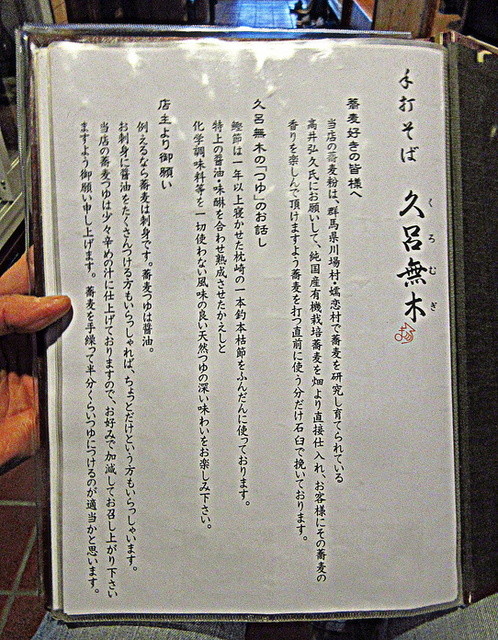 手打そば 久呂無木
くろむぎ
蕎麦好きの皆様へ
当店の蕎麦粉は、群馬県川場村・嬬恋村で蕎麦を研究し育てられている
高井弘久氏にお願いして、純国産有機栽培蕎麦を畑より直接仕入れ、お客様にその蕎麦の
香りを楽しんで頂けますよう蕎麦を打つ直前に使う分だけ石臼で挽いております。
久呂無木の「つゆ」のお話し
鰹節は一年以上寝かせた枕崎の一本釣本枯節をふんだんに使っております。
特上の醤油・味醂を合わせ熟成させたかえしと
化学調味料等を一切使わない風味の良い天然つゆの深い味わいをお楽しみ下さい。
店主より御願い
例えるなら蕎麦は刺身です。蕎麦つゆは醤油。
お刺身に醤油をたくさんつける方もいらっしゃれば、ちょっとだけという方もいらっしゃいます。
当店の蕎麦つゆは少々辛めの汁に仕上げておりますので、お好みで加減してお召し上がり下さい
ますよう御願い申し上げます。蕎麦を手繰って半分くらいつゆにつけるのが適当かと思います。